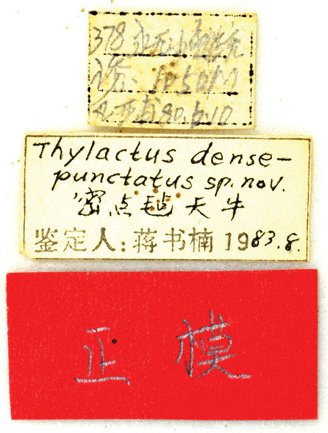 378
1050M
80.6.10
Thylactus dense-
punctatus sp. nov.
密点毡天牛
鉴定人:蒋书楠 1983.8.
正模